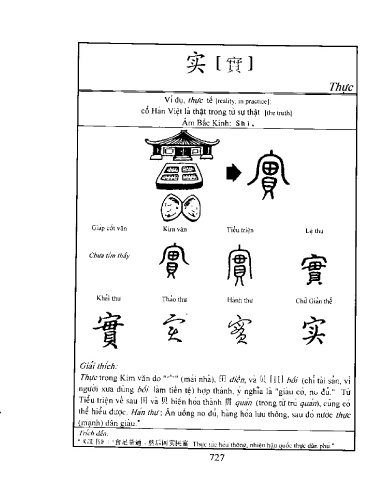 实 [實]
Thực
Ví dụ, thực tế [reality, in practice];
cổ Hán Việt là thật trong từ sự thật [the truth]
Âm Bắc Kinh: Shí.
Giáp cốt văn Kim văn Tiểu triện Lệ thư
Chưa tìm thấy 實 實 實
Khải thư Thảo thư Hành thư Chữ Giản thể
實 实 實 实
Giải thích:
Thực trong Kim văn do "宀" (mái nhà), 田 điền, và 贝 [貝] bối (chỉ tài sản, vì
người xưa dùng bối làm tiền tệ) hợp thành, ý nghĩa là "giàu có, no đủ." Từ
Tiểu triện về sau 田 và 贝 biến hóa thành 貫 quán (trong từ trú quán), cũng có
thể hiểu được. Hán thư: Ăn uống no đủ, hàng hóa lưu thông, sau đó nước thực
(mạnh) dân giàu."
Trích dẫn:
"《汉书》: "食足货通, 然后国实民富 Thực túc hóa thông, nhiên hậu quốc thực dân phú."
727